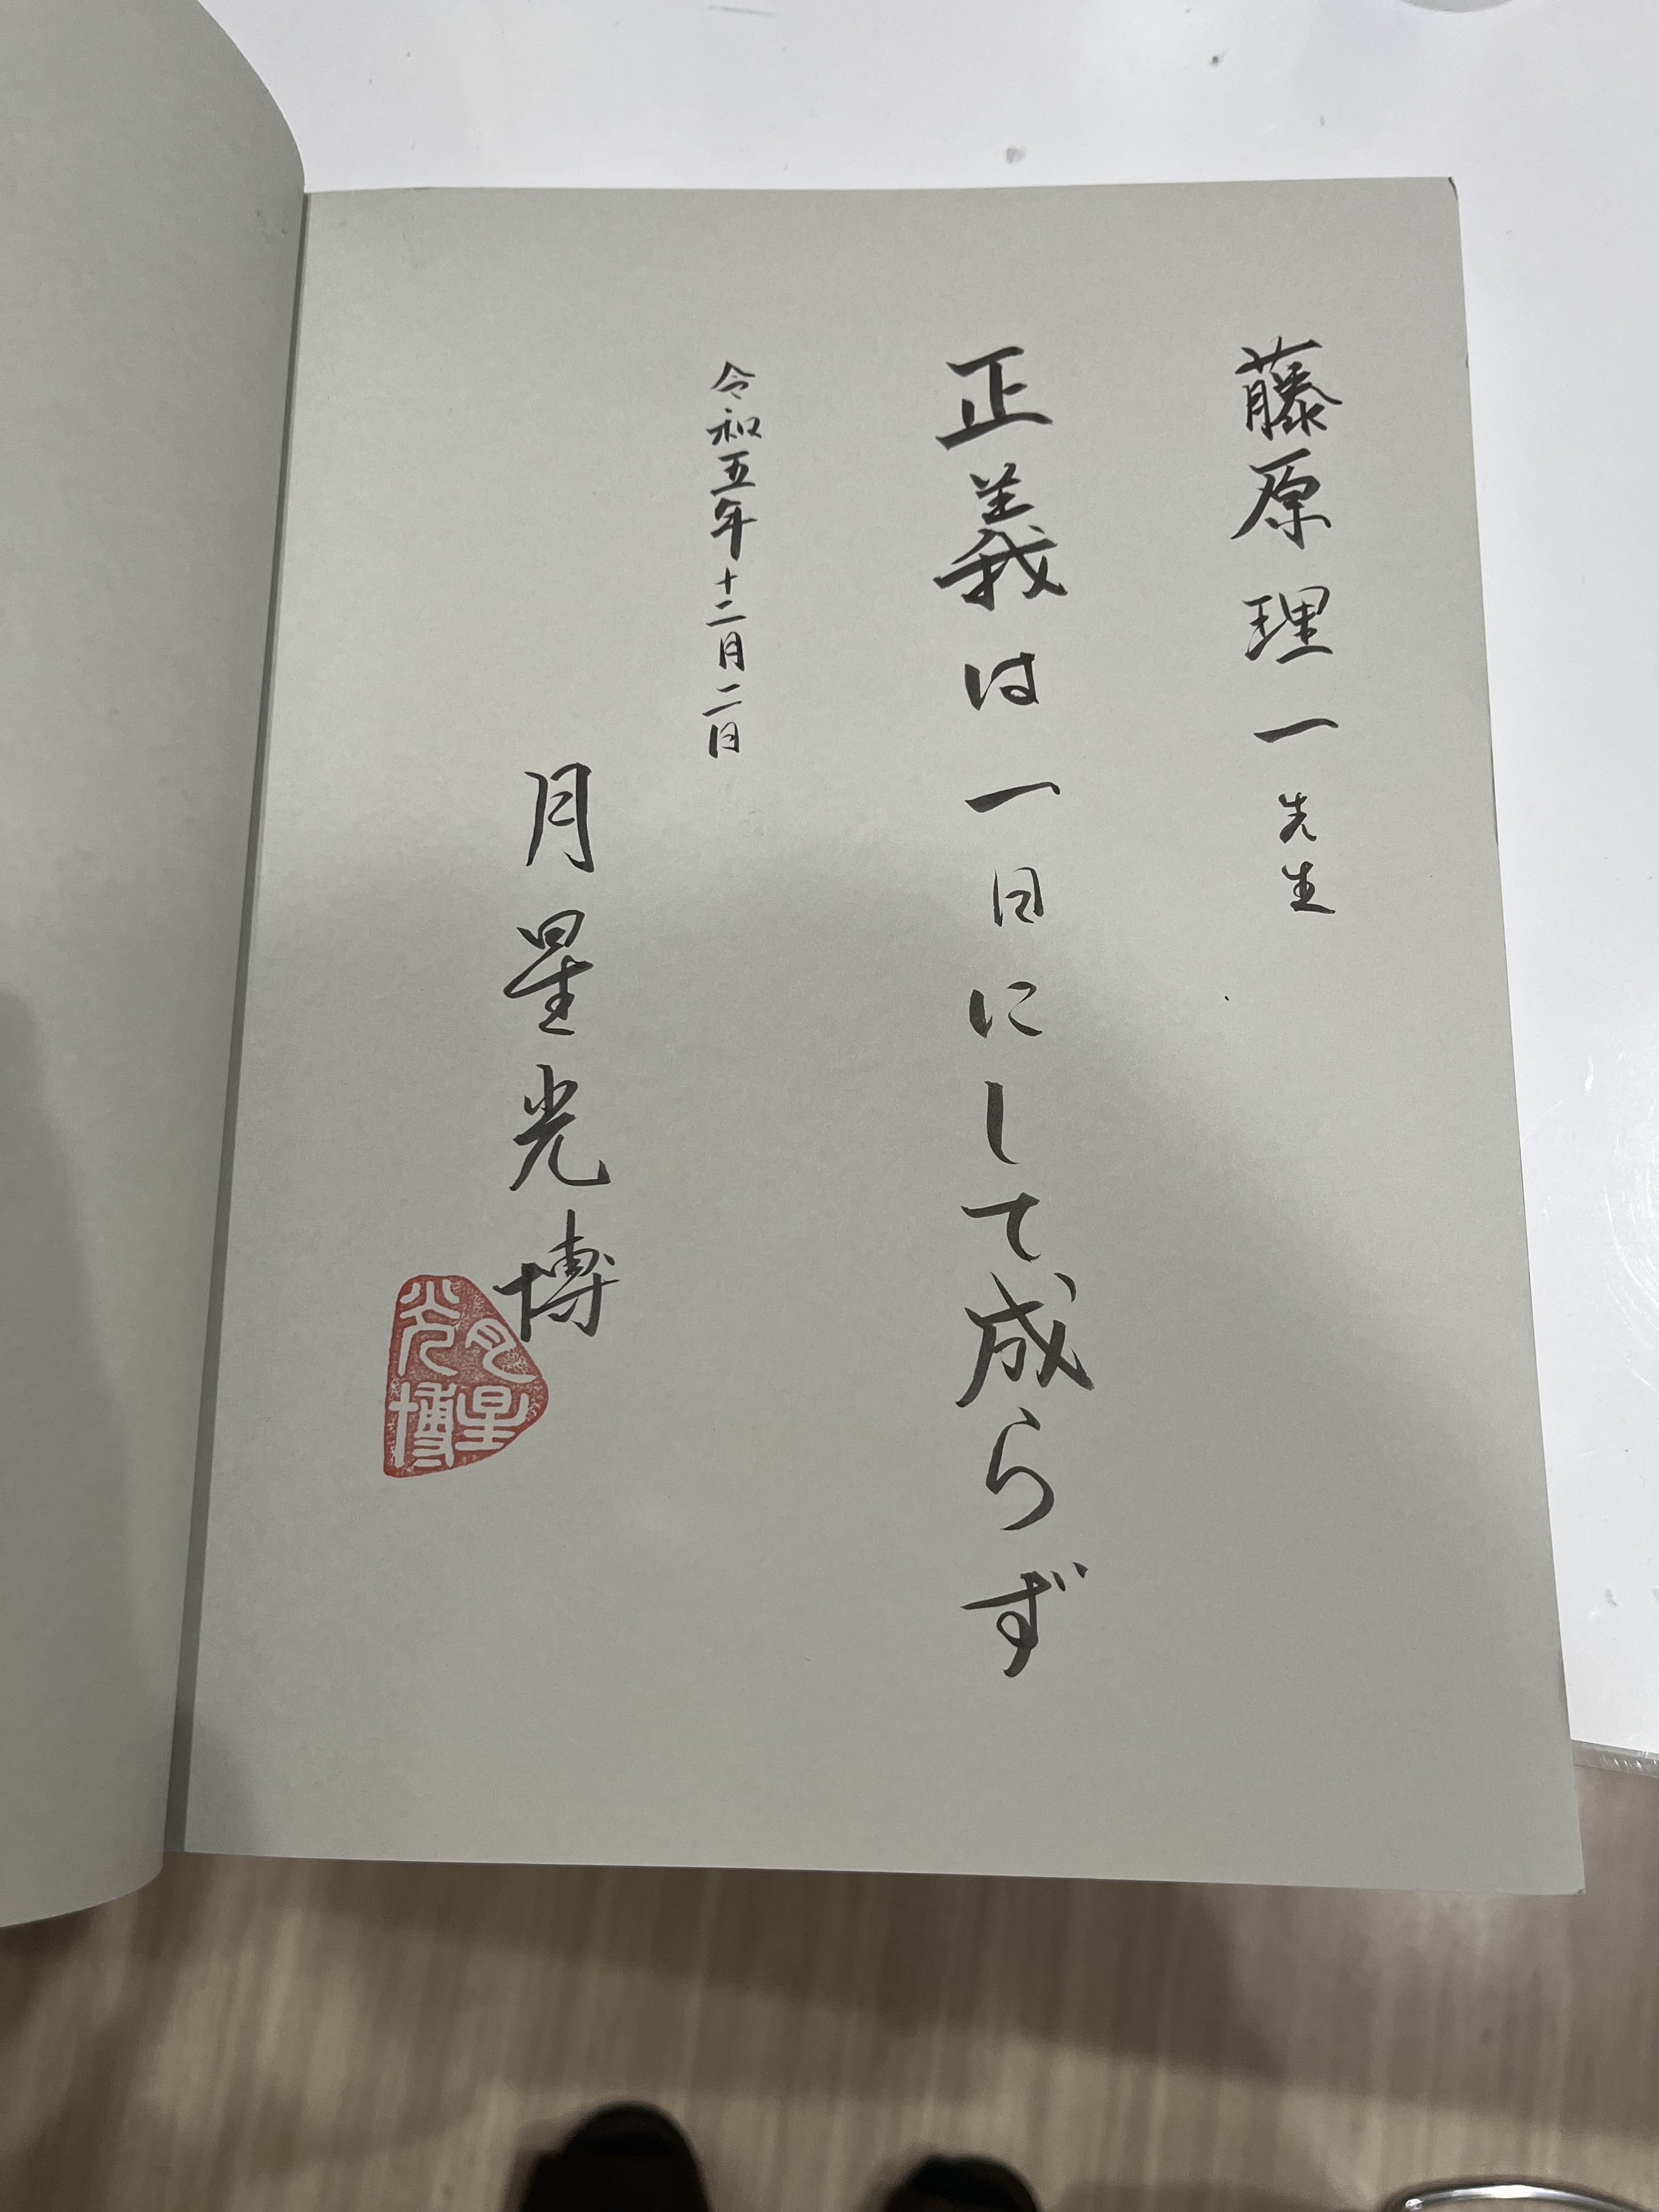 藤原理一先生
正義は一日にして成らず
令和五年十二月二日
月星光博
月星
光博